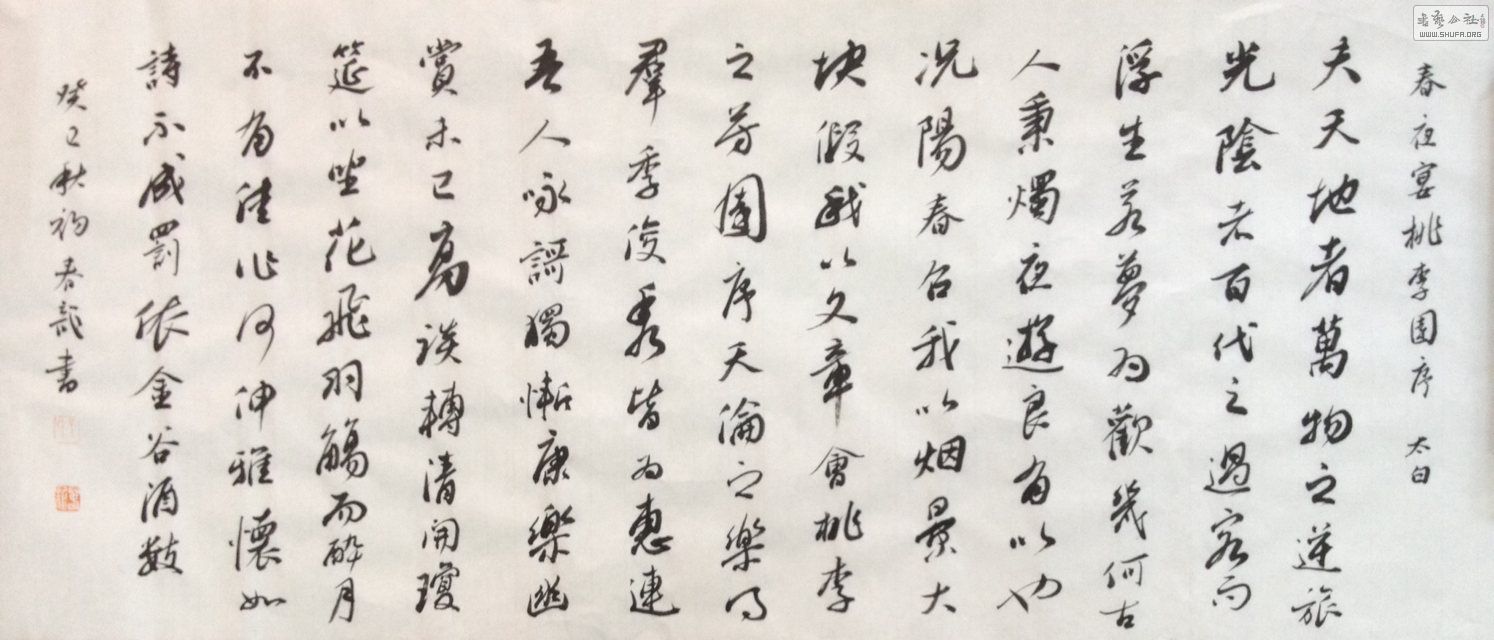 春夜宴桃李園序 太白
夫天地者萬物之逆旅
光陰者百代之過客而
浮生若夢為歡幾何古
人秉燭夜遊良有以也
况陽春召我以烟景大
块假我以文章會桃李
之芳園序天倫之樂事
羣季俊秀皆為惠連
吾人咏謌獨慚康樂幽
賞未已高談轉清開瓊
筵以坐花飛羽觴而醉月
不有佳作何伸雅懷如
詩不成罰依金谷酒數
癸巳秋初春龍書
書藝公社
WWW.SHUFA.ORG